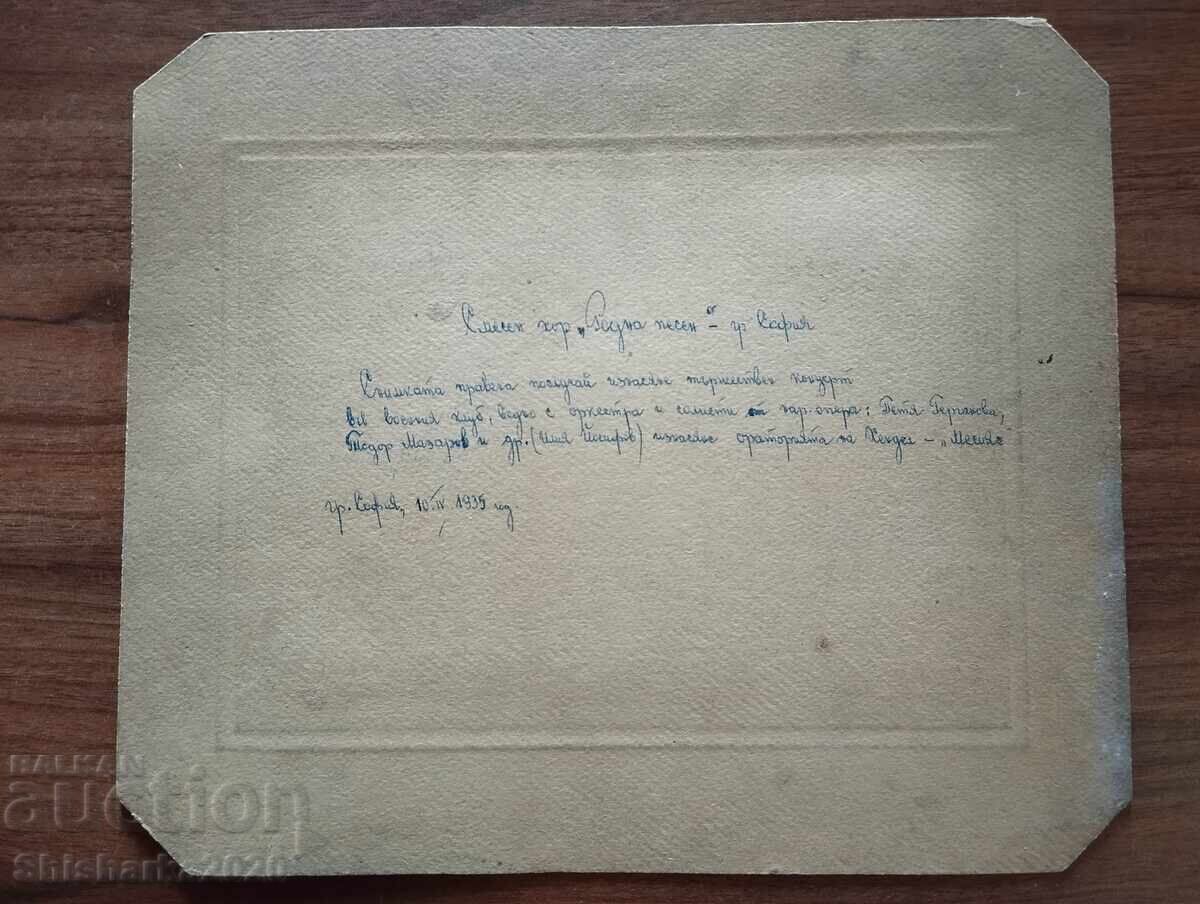 Смесен хор „Родна песен" - гр София
Снимката правена послучай изнасяне тържествен концерт
във военния клуб, ведно с оркестра и солисти от нар. опера: Петя Герганова,
Тодор Мазаров и др. (Илия Йосифов) изнасяне ораторията на Хендел - „Месия"
гр. София, 10.IV 1935 год.
BALKAN
auction
Shishark 2020